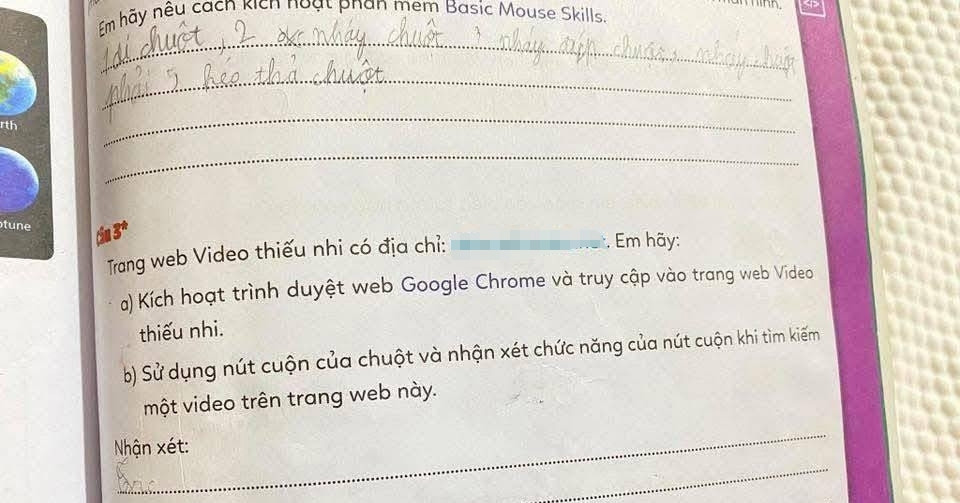 màn hình.
Em hãy nêu cách kích hoạt phần mềm Basic Mouse Skills.
1 di chuột, 2 nháy chuột, 3 nháy đúp chuột, nháy chuột
phải 5, kéo thả chuột
rth
ptune
Câu 3*
Trang web Video thiếu nhi có địa chỉ: . Em hãy:
a) Kích hoạt trình duyệt web Google Chrome và truy cập vào trang web Video
thiếu nhi.
b) Sử dụng nút cuộn của chuột và nhận xét chức năng của nút cuộn khi tìm kiếm
một video trên trang web này.
Nhận xét: